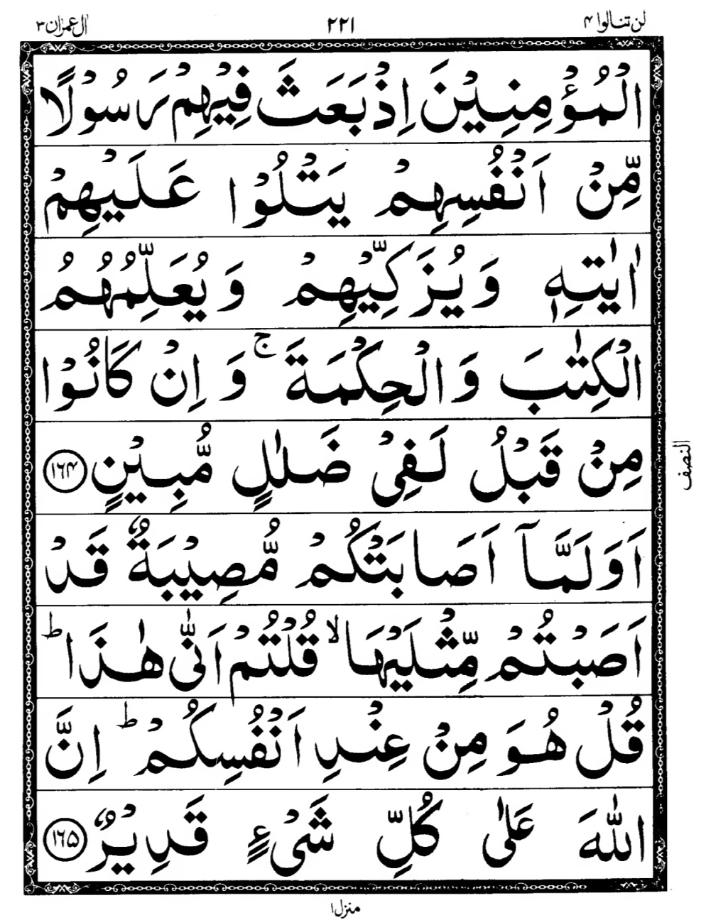 لن تنالوا ۴ ۲۲۱ اٰل عمرٰن ۳
الْمُؤْمِنِيْنَ اِذْ بَعَثَ فِيْهِمْ رَسُوْلًا
مِّنْ اَنْفُسِهِمْ يَتْلُوْا عَلَيْهِمْ
اٰيٰتِهٖ وَيُزَكِّيْهِمْ وَيُعَلِّمُهُمُ
الْكِتٰبَ وَالْحِكْمَةَ ۚ وَاِنْ كَانُوْا
مِنْ قَبْلُ لَفِىْ ضَلٰلٍ مُّبِيْنٍ ۱۶۴
النصف
اَوَلَمَّاۤ اَصَابَتْكُمْ مُّصِيْبَةٌ قَدْ
اَصَبْتُمْ مِّثْلَيْهَا ۙ قُلْتُمْ اَنّٰى هٰذَا ؕ
قُلْ هُوَ مِنْ عِنْدِ اَنْفُسِكُمْ ؕ اِنَّ
اللّٰهَ عَلٰى كُلِّ شَىْءٍ قَدِيْرٌ ۱۶۵
منزل ۱